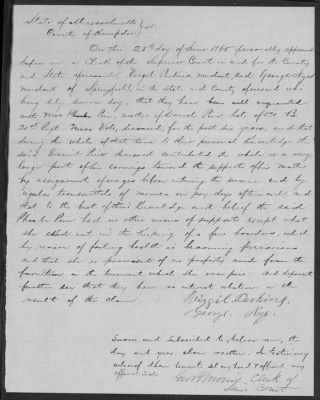 State of Massachusetts } ss.
County of Hampden
On this 28th day of June 1865 personally appeared
before me a Clerk of the Superior Court in and for the County
and State aforesaid, Virgil Perkins, resident, and George Nye
resident of Springfield in the State and County aforesaid who
being duly sworn say, that they have been well acquainted
with Mrs Phoebe Peur, mother of Daniel Peur late of Co B
Regt Mass Vols, deceased, for the past six years, and that
during the whole of that time to their personal knowledge the
said Daniel Peur deceased contributed the whole or a very
large part of his earnings toward the support of his mother
by payment of wages before entering the service and by
regular transmittals of monies on pay days afterward and
that to the best of their knowledge and belief the said
Phoebe Peur had no other means of support except what
she eked out in the keeping of a few boarders which
by reason of failing health is becoming precarious
and that she is possessed of no property aside from the
furniture in the tenement which she occupies. And deponents
further say that they have no interest whatever in the
result of this claim
Virgil Perkins,
George Nye.
Sworn and Subscribed to before me, the
day and year above written. In testimony
whereof I have hereunto set my hand & affixed my
official Seal.
Geo B Morris, Clerk of
Court